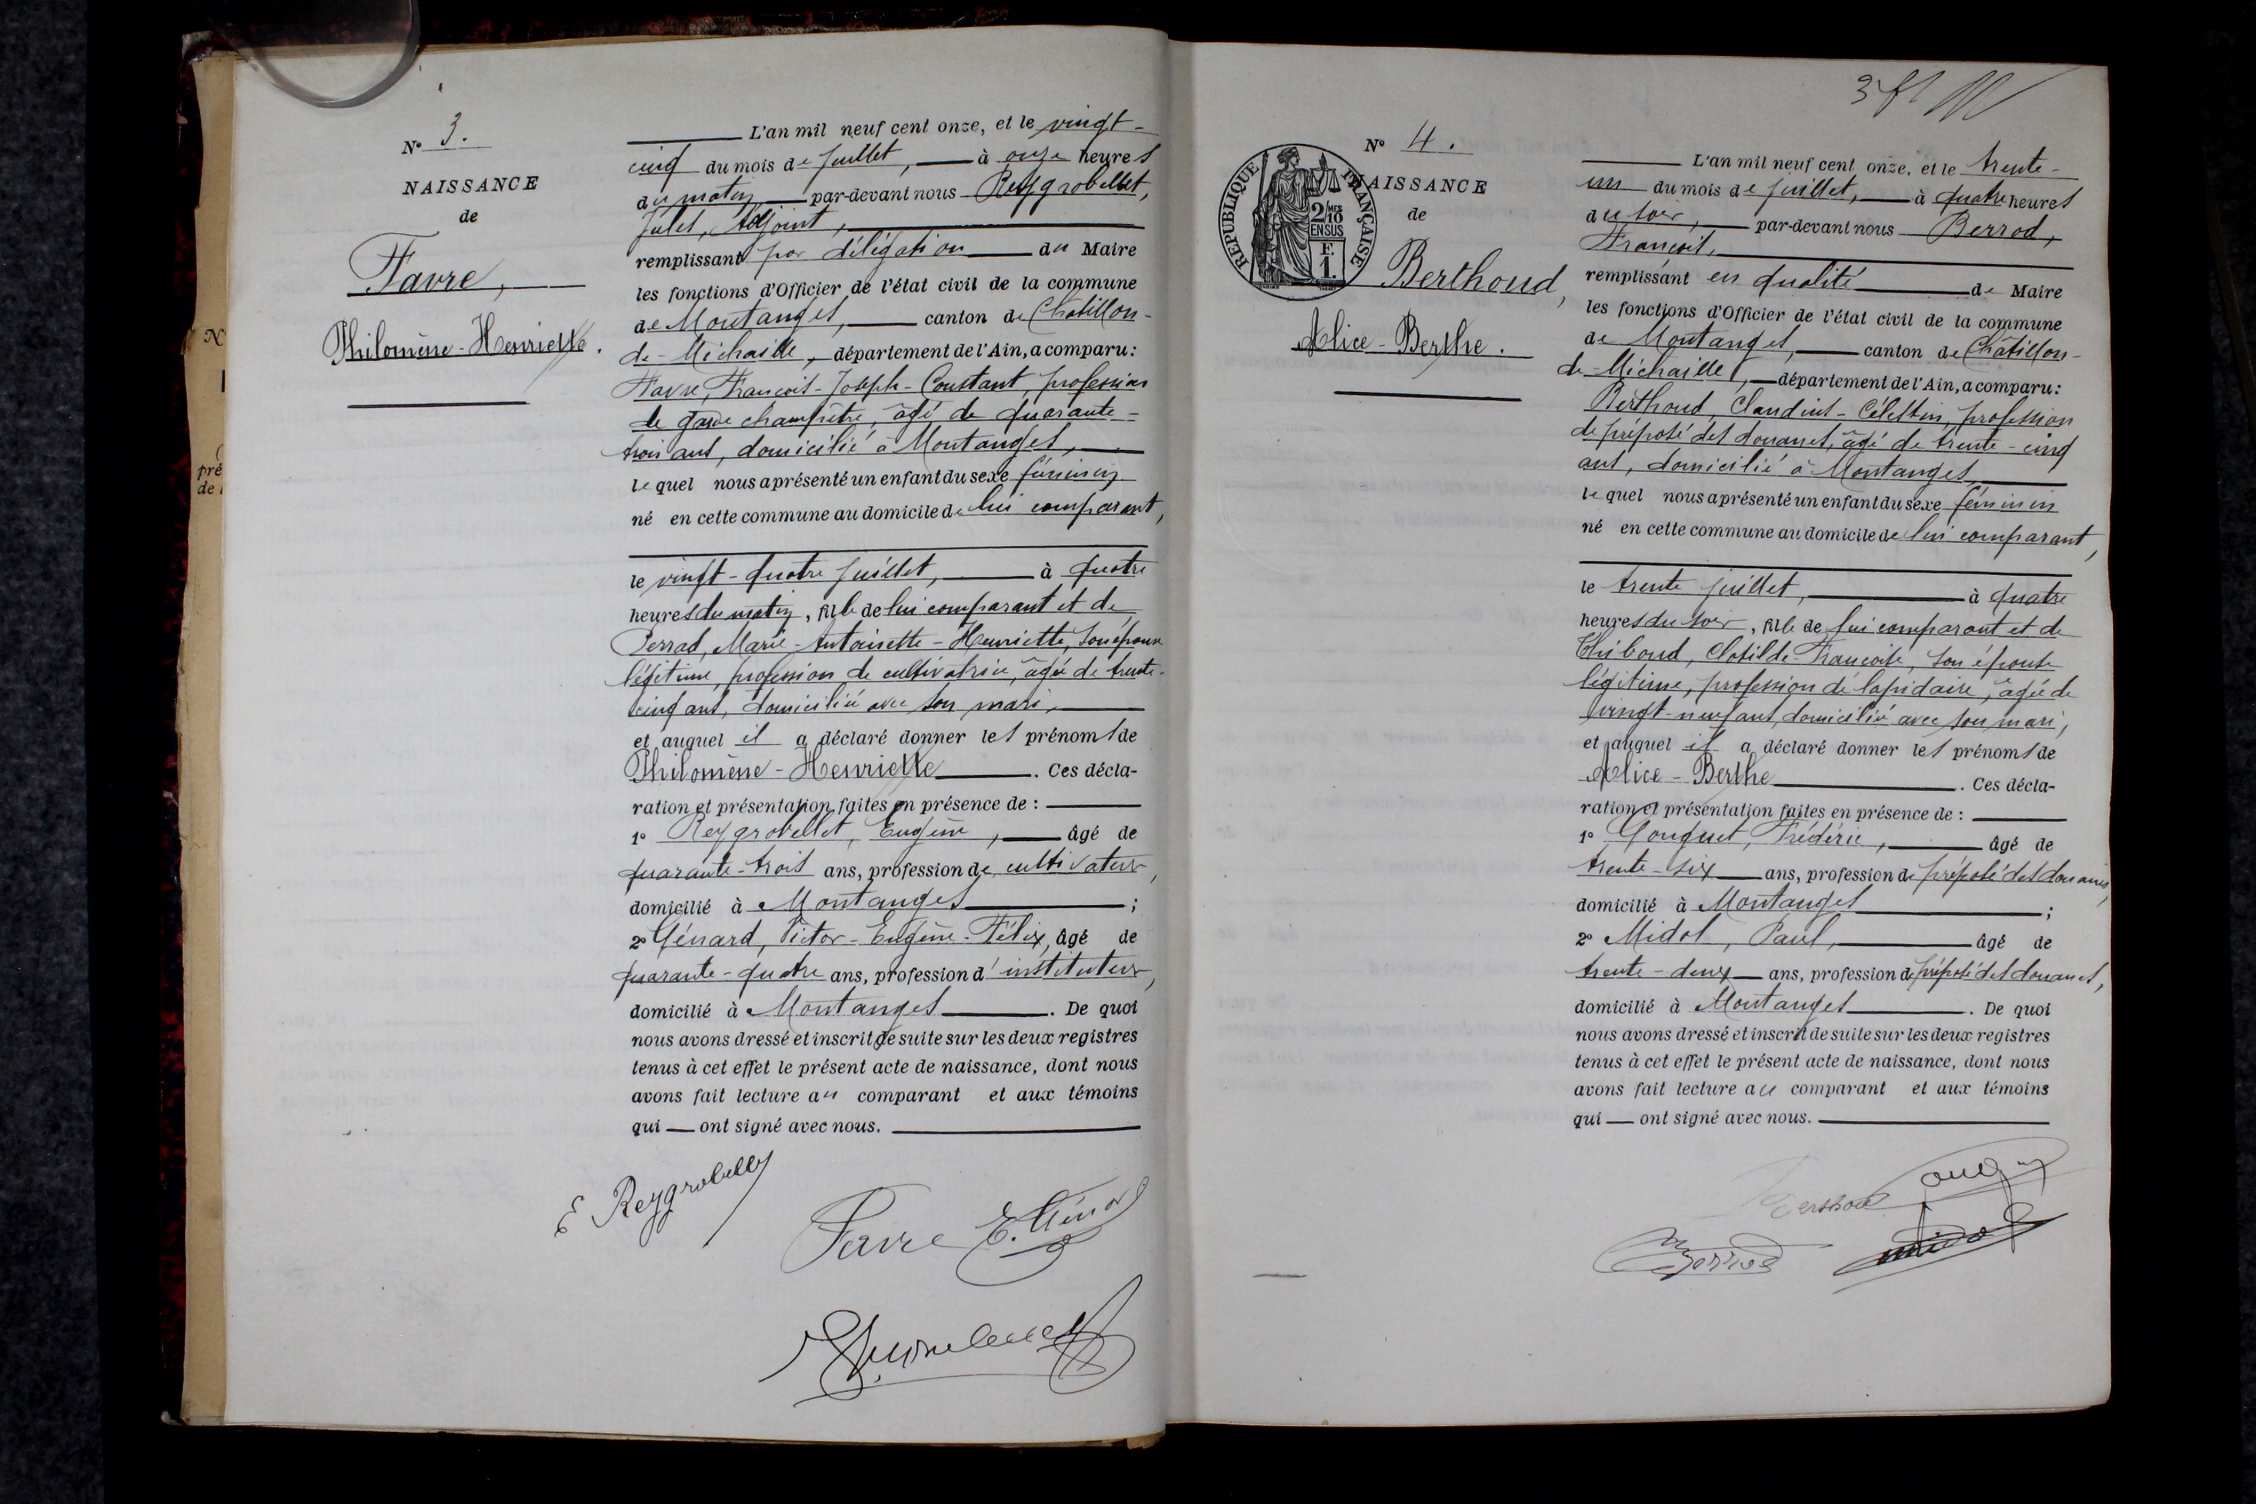 N° 3.
NAISSANCE
de
Favre,
Philomène-Henriette.
L'an mil neuf cent onze, et le vingt-
cinq du mois de juillet, à onze heures
du matin par-devant nous Reygrobellet,
Jules, Adjoint,
remplissant par délégation du Maire
les fonctions d'Officier de l'état civil de la commune
de Montanges, canton de Châtillon-
de-Michaille, département de l'Ain, a comparu:
Favre, François-Joseph-Constant, profession
de garde champêtre, âgé de quarante-
trois ans, domicilié à Montanges,
lequel nous a présenté un enfant du sexe féminin
né en cette commune au domicile de lui comparant,
le vingt-quatre juillet, à quatre
heures du matin, fille de lui comparant et de
Perrad, Marie-Antoinette-Henriette, son épouse
légitime, profession de cultivatrice, âgée de trente-
cinq ans, domiciliée avec son mari,
et auquel il a déclaré donner les prénoms de
Philomène-Henriette. Ces décla-
ration et présentation faites en présence de :
1° Reygrobellet, Eugène, âgé de
quarante-trois ans, profession de cultivateur,
domicilié à Montanges ;
2° Génard, Victor-Eugène-Félix, âgé de
quarante-quatre ans, profession d'instituteur,
domicilié à Montanges. De quoi
nous avons dressé et inscrit de suite sur les deux registres
tenus à cet effet le présent acte de naissance, dont nous
avons fait lecture au comparant et aux témoins
qui ont signé avec nous.
E Reygrobellet
Favre E. Génard
N
pré
de l
N° 4.
NAISSANCE
de
RÉPUBLIQUE FRANÇAISE
2/10
EN SUS
F.
1.
Berthoud,
Alice-Berthe.
L'an mil neuf cent onze, et le trente-
un du mois de juillet, à quatre heures
du soir, par-devant nous Berrod,
François,
remplissant en qualité de Maire
les fonctions d'Officier de l'état civil de la commune
de Montanges, canton de Châtillon-
de-Michaille, département de l'Ain, a comparu:
Berthoud, Claudius-Célestin, profession
de préposé des douanes, âgé de trente-cinq
ans, domicilié à Montanges
lequel nous a présenté un enfant du sexe féminin
né en cette commune au domicile de lui comparant,
le trente juillet, à quatre
heures du soir, fille de lui comparant et de
Thiboud, Clotilde-Françoise, son épouse
légitime, profession de lapidaire, âgée de
vingt-neuf ans, domiciliée avec son mari,
et auquel il a déclaré donner les prénoms de
Alice-Berthe. Ces décla-
ration et présentation faites en présence de :
1° Gouquet, Frédéric, âgé de
trente-six ans, profession de préposé des douanes,
domicilié à Montanges ;
2° Midol, Paul, âgé de
trente-deux ans, profession de préposé des douanes,
domicilié à Montanges. De quoi
nous avons dressé et inscrit de suite sur les deux registres
tenus à cet effet le présent acte de naissance, dont nous
avons fait lecture au comparant et aux témoins
qui ont signé avec nous.
Berthoud
Berrod Midol